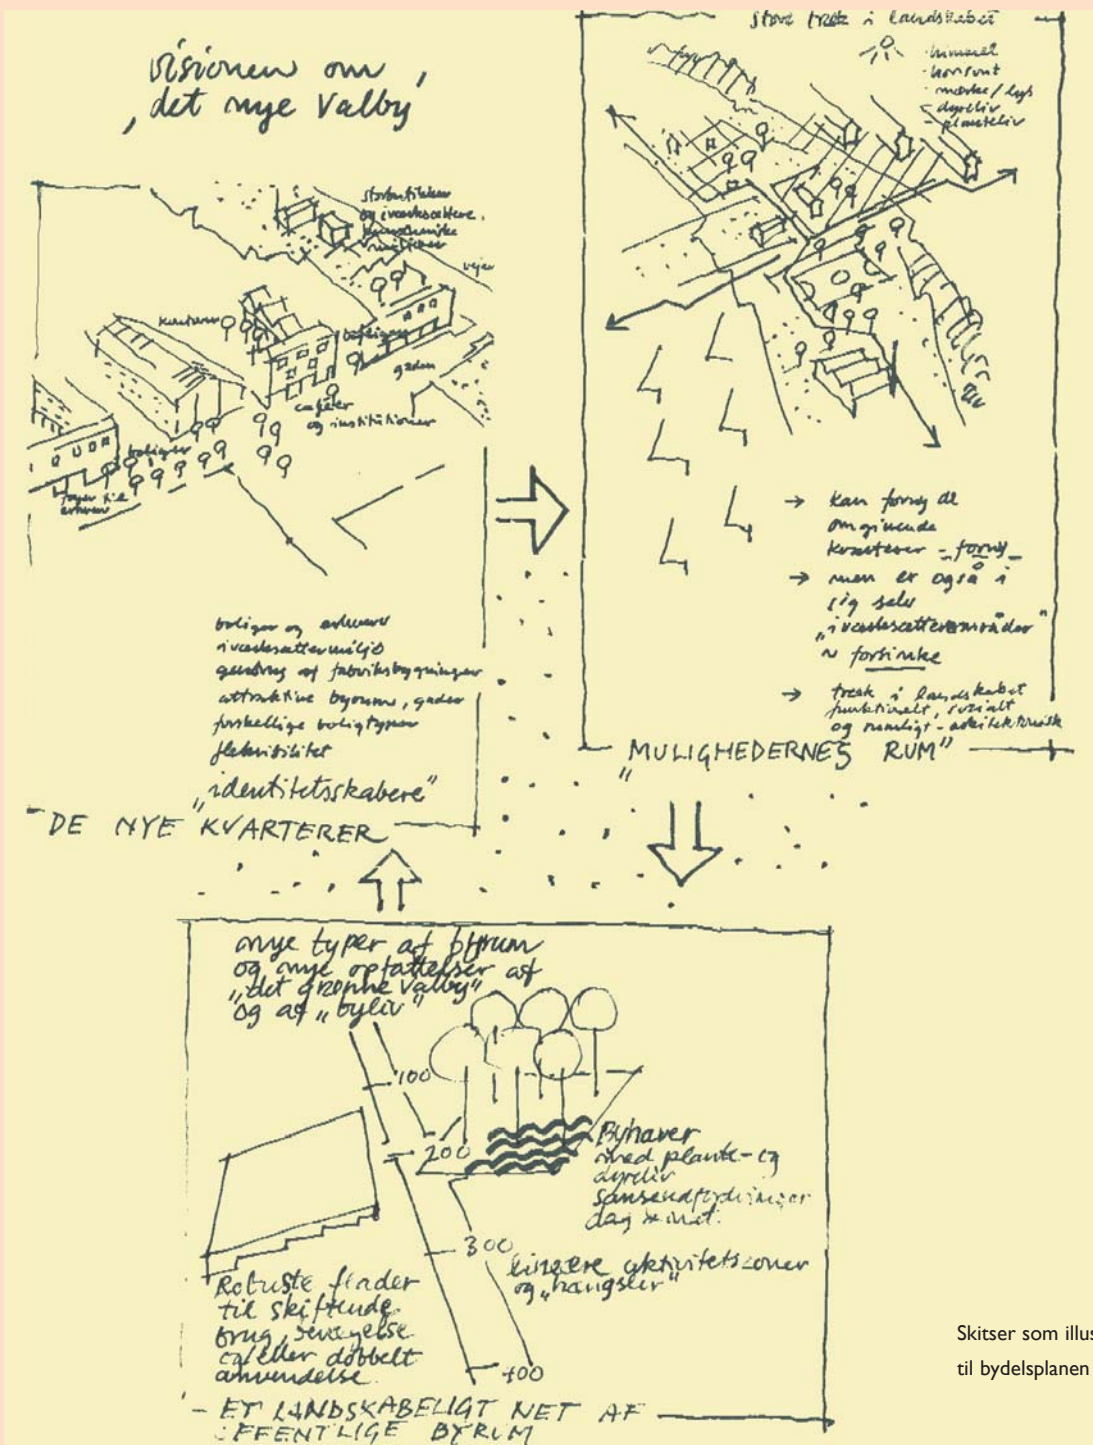 visionen om
"det nye Valby"
storbutikker
og iværksættere.
vejen
boliger
gaden
caféer
og institutioner
boliger
boliger og erhverv
iværksættermiljø
genbrug af fabriksbygninger
attraktive byrum, gader
forskellige boligtyper
fleksibilitet
"identitetsskabere"
- DE NYE KVARTERER
store træk i landskabet
· himmel
· horisont
· mørke/lys
- dyreliv
- planteliv
→ kan forny de
omgivende
kvarterer - forny -
→ men er også i
sig selv
"iværksætterområder"
~ forsinke
→ træk i landskabet
funktionelt, socialt
og rumligt - arkitektonisk
"MULIGHEDERNES RUM"
nye typer af byrum
og nye opfattelser af
"det grønne Valby"
og af "byliv"
100
200
300
400
Byhaver
med plante- og
dyreliv
sanseudfordringer
dag & nat.
lineære aktivitetszoner
og "hængsler"
Robuste flader
til skiftende
brug, bevægelse
og/eller dobbelt
anvendelse
- ET LANDSKABELIGT NET AF
OFFENTLIGE BYRUM
Skitser som illus
til bydelsplanen